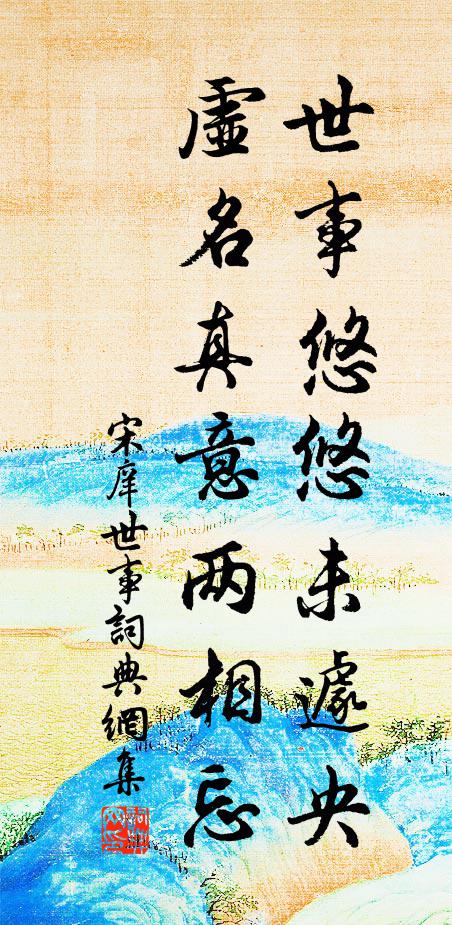 世事悠悠未遽央
虛名真意两相忘
宋庠世事詞典網集